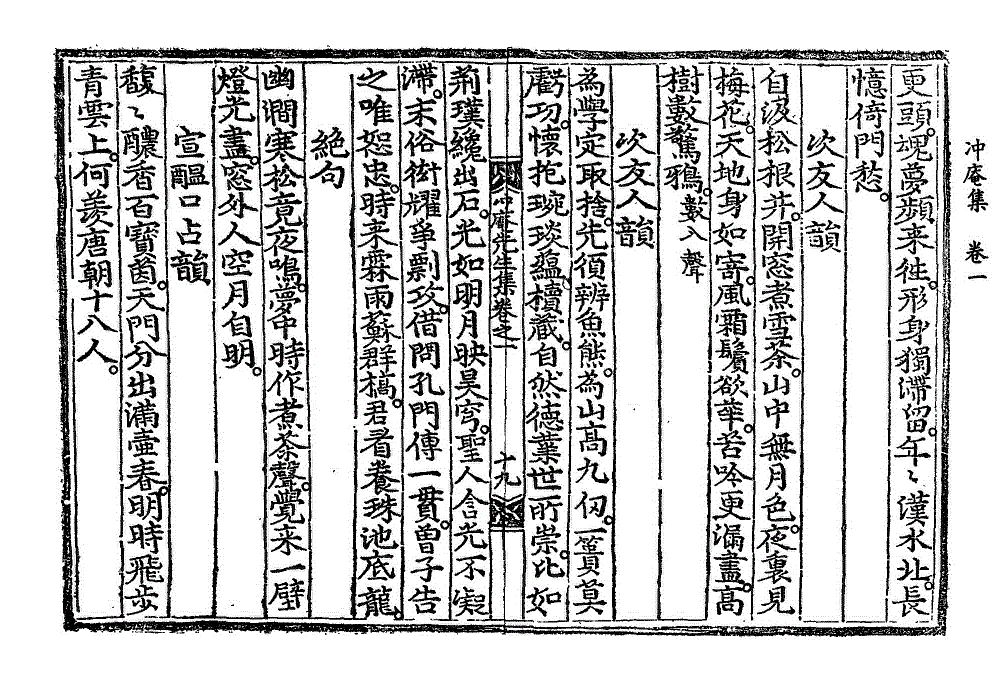 冲庵集　卷一
更頭。魂夢頻来徃。形身獨滯留。年〻漢水北。長
憶倚門愁。
次友人韻
自汲松根井。開窓煮雪茶。山中無月色。夜裏見
梅花。天地身如寄。風霜鬢欲華。苦吟更漏盡。高
樹數驚鴉。數入聲
次友人韻
為學定取捨。先須辨魚熊。為山高九仭。一簣莫
虧功。懷抱琬琰蘊。櫝藏自然德業世所崇。比如
冲庵先生集卷之一
十九
荊璞纔出石。光如明月映昊穹。聖人含光不凝
滯。末俗衒耀爭剽攻。借問孔門傳一貫。曾子告
之唯恕忠。時来霖雨蘇群槁。君看養珠池底龍。
絶句
幽澗寒松竟夜鳴。夢中時作煮茶聲。覺来一壁
燈光盡。窓外人空月自明。
宣醞口占韻
馥〻醲香百寶茵。天門分出滿壷春。明時飛步
青雲上。何羨唐朝十八人。